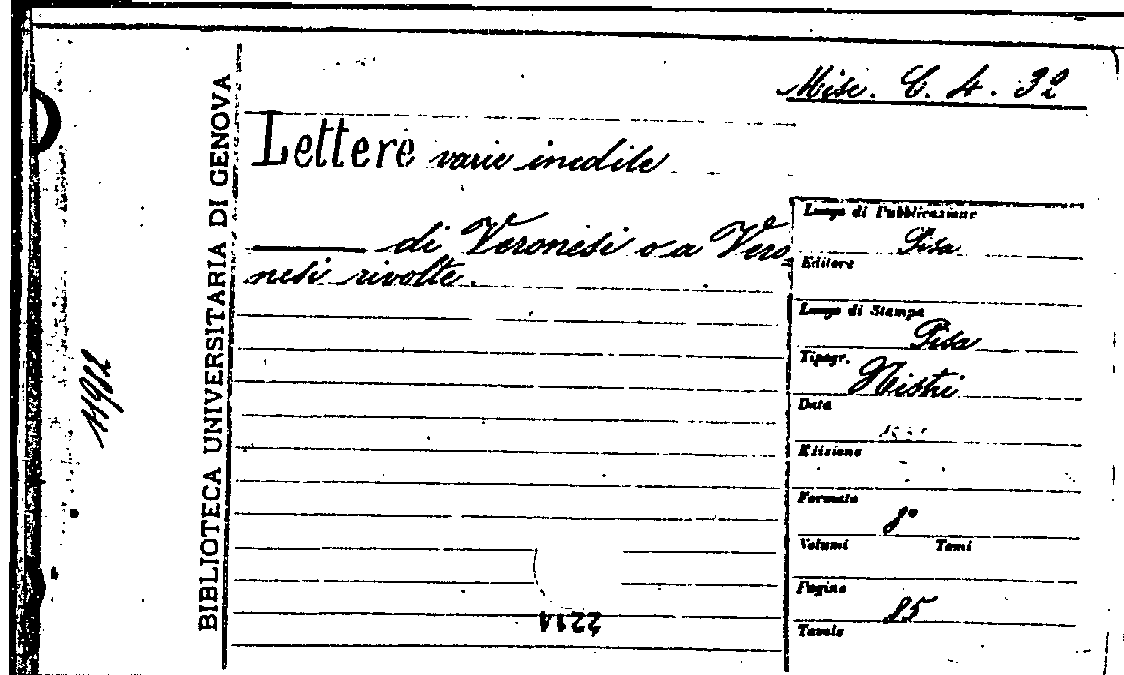 Misc. C. 4. 32
Lettere varie inedite
——— di Veronesi o a Vero-
nesi rivolte.
Luogo di Pubblicazione
Pisa
Editore
Luogo di Stampa
Pisa
Tipogr.
Nistri
Data
Edizione
Formato
8°
Volumi Tomi
Pagine
85
Tavole
BIBLIOTECA UNIVERSITARIA DI GENOVA
2214